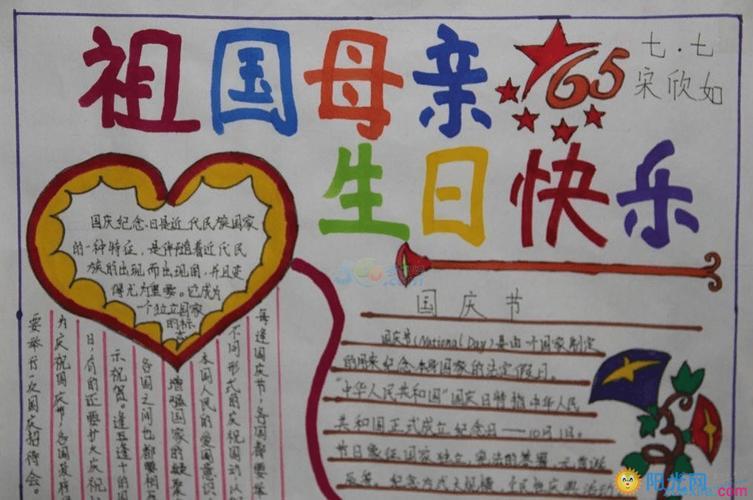 祖国母亲
65
七·七
宋欣如
生日快乐
国庆纪念日是近代民族国家
的一种特征，是伴随着近代民
族的出现而出现的，并且变
得尤为重要。它成为
一个独立国家
的标志
每逢国庆节，各国都要举
不同形式的庆祝活动，以
本国人民的爱国意识
增强国家的凝聚
各国之间也都要相
示祝贺。逢五逢十的国
日，有的还要扩大庆祝
为庆祝国庆节，各国政府
要举行一次国庆招待会。
国庆节
国庆节(National Day)是由一个国家制定
的用来纪念本身国家的法定假日。
“中华人民共和国”国庆日特指中华人民
共和国正式成立纪念日——10月1日。
节日象征国家独立、宪法的签署、元首诞
阳光网